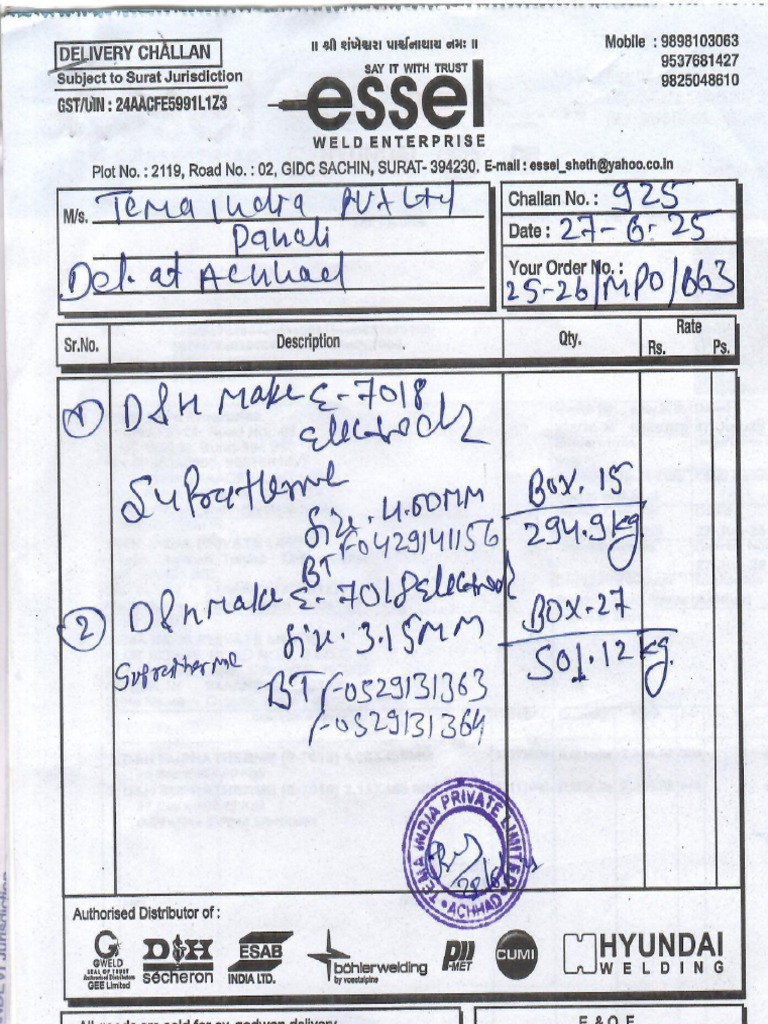 DELIVERY CHALLAN
Subject to Surat Jurisdiction
GST/UIN : 24AACFE5991L1Z3
॥ શ્રી શંખેશ્વરા પાર્શ્વનાથાય નમઃ ॥
SAY IT WITH TRUST
essel
WELD ENTERPRISE
Mobile : 9898103063
9537681427
9825048610
Plot No. : 2119, Road No. : 02, GIDC SACHIN, SURAT- 394230. E-mail : essel_sheth@yahoo.co.in
M/s. Tema India PVT Ltd
Panoli
Del. at Achhad
Challan No. : 925
Date : 27-6-25
Your Order No. :
25-26/MPO/663
Sr.No. Description Qty. Rate
Rs. Ps.
① D&H Make E-7018
Electrodz
Supratherme
Box. 15
siz. 4.00MM
294.9 kg
BT F0429141156
② D&H Make E-7018 Electrod
BOX-27
siz. 3.15MM
Supratherme
501.12 kg.
BT F0529131363
F0529131364
TEMA INDIA PRIVATE LIMITED
ACHHAD
Authorised Distributor of :
GWELD
SEAL OF TRUST
Authorised Distributors
GEE Limited
D&H
sécheron
ESAB
INDIA LTD.
böhlerwelding
by voestalpine
PII
-MET
CUMI
HYUNDAI
WELDING
All goods are sold for ex-godwon delivery
E & O E